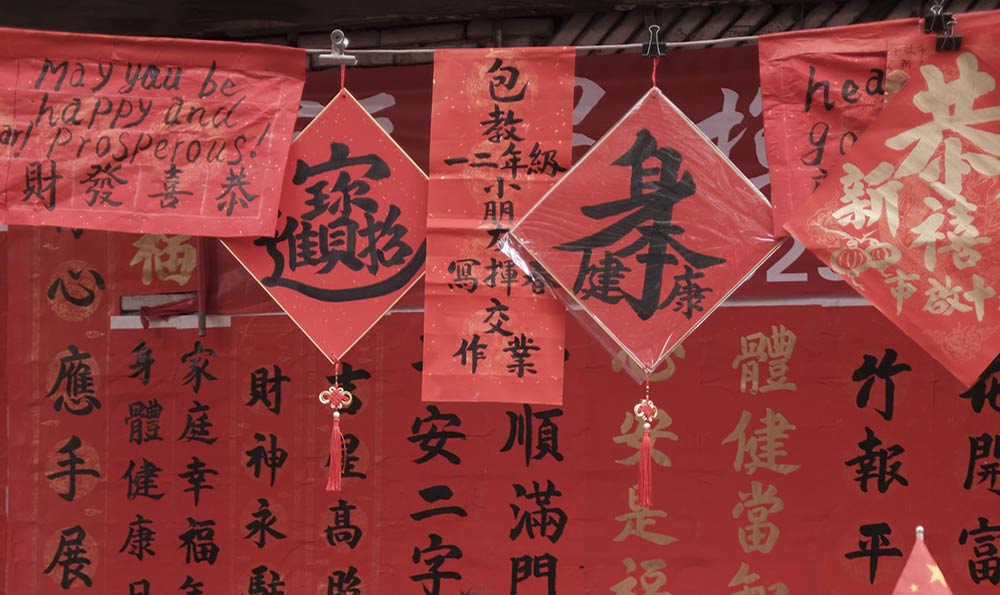 May you be
happy and
ar! Prosperous!
恭喜發財
招財進寶
包教
一二年級
小朋友
寫揮春
交
作業
身体健康
hea
go
恭
新禧
市啟十
福
心應手展
身體健康
家庭幸福年
財神永駐
吉星高照
安二字
順滿門
安是福
體健當知
竹報平
開富